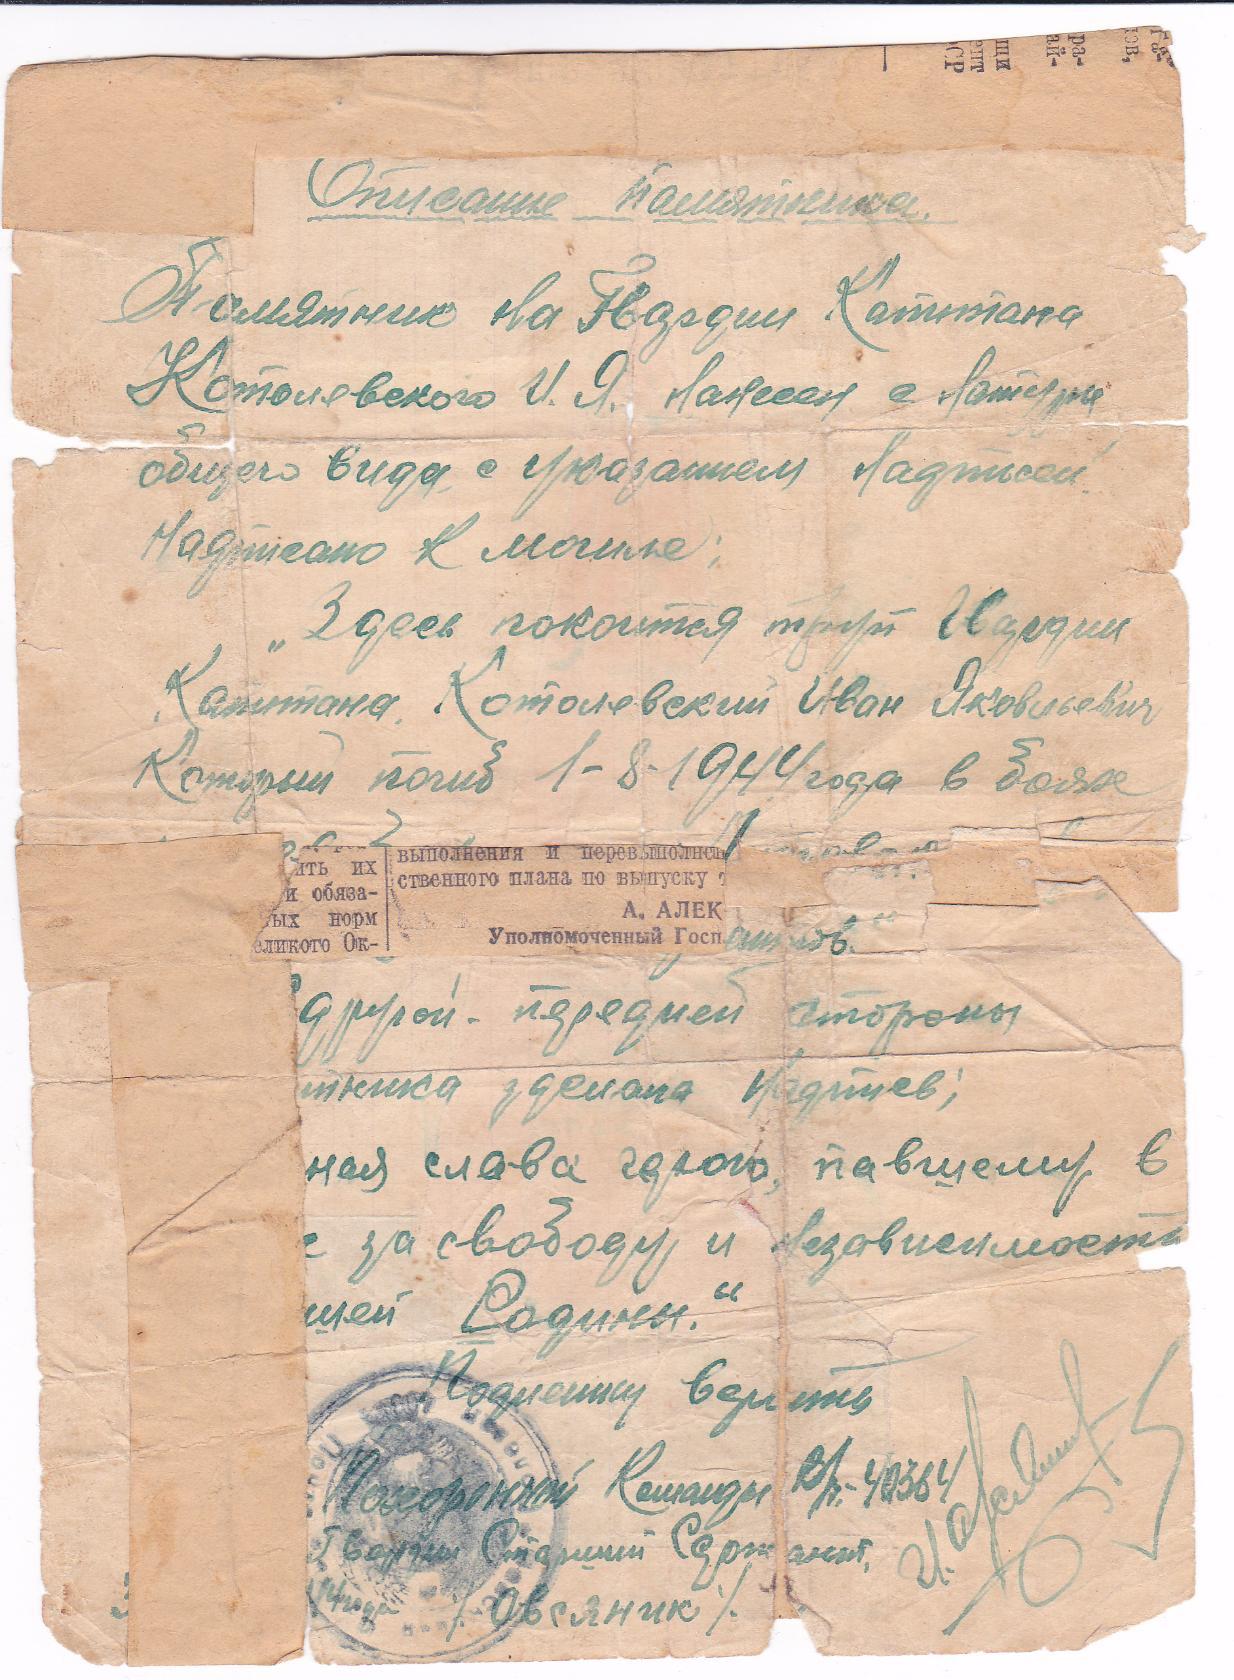 Описание памятника.
Памятник на Гвардии Капитана
Котолевского И. Я. нанесен с натуры
общего вида с указанием надписей.
Надписано к могиле;
„Здесь покоится труп Гвардии
Капитана. Котолевский Иван Яковльевич
Который погиб 1-8-1944 года в боях
ить их
выполнения и перевыполнен
и обяза-
ственного плана по выпуску
ых норм
А. АЛЕК
еликого Ок-
Уполномоченный Госп
другой передней стороны
тника зделана надпись;
ная слава герою, павшему в
за свободу и независимость
шей Родины.“
Подпись верить
Похоронной Команды п/п. 40364
Гвардии Старший Сержант,
/Овсяник/.